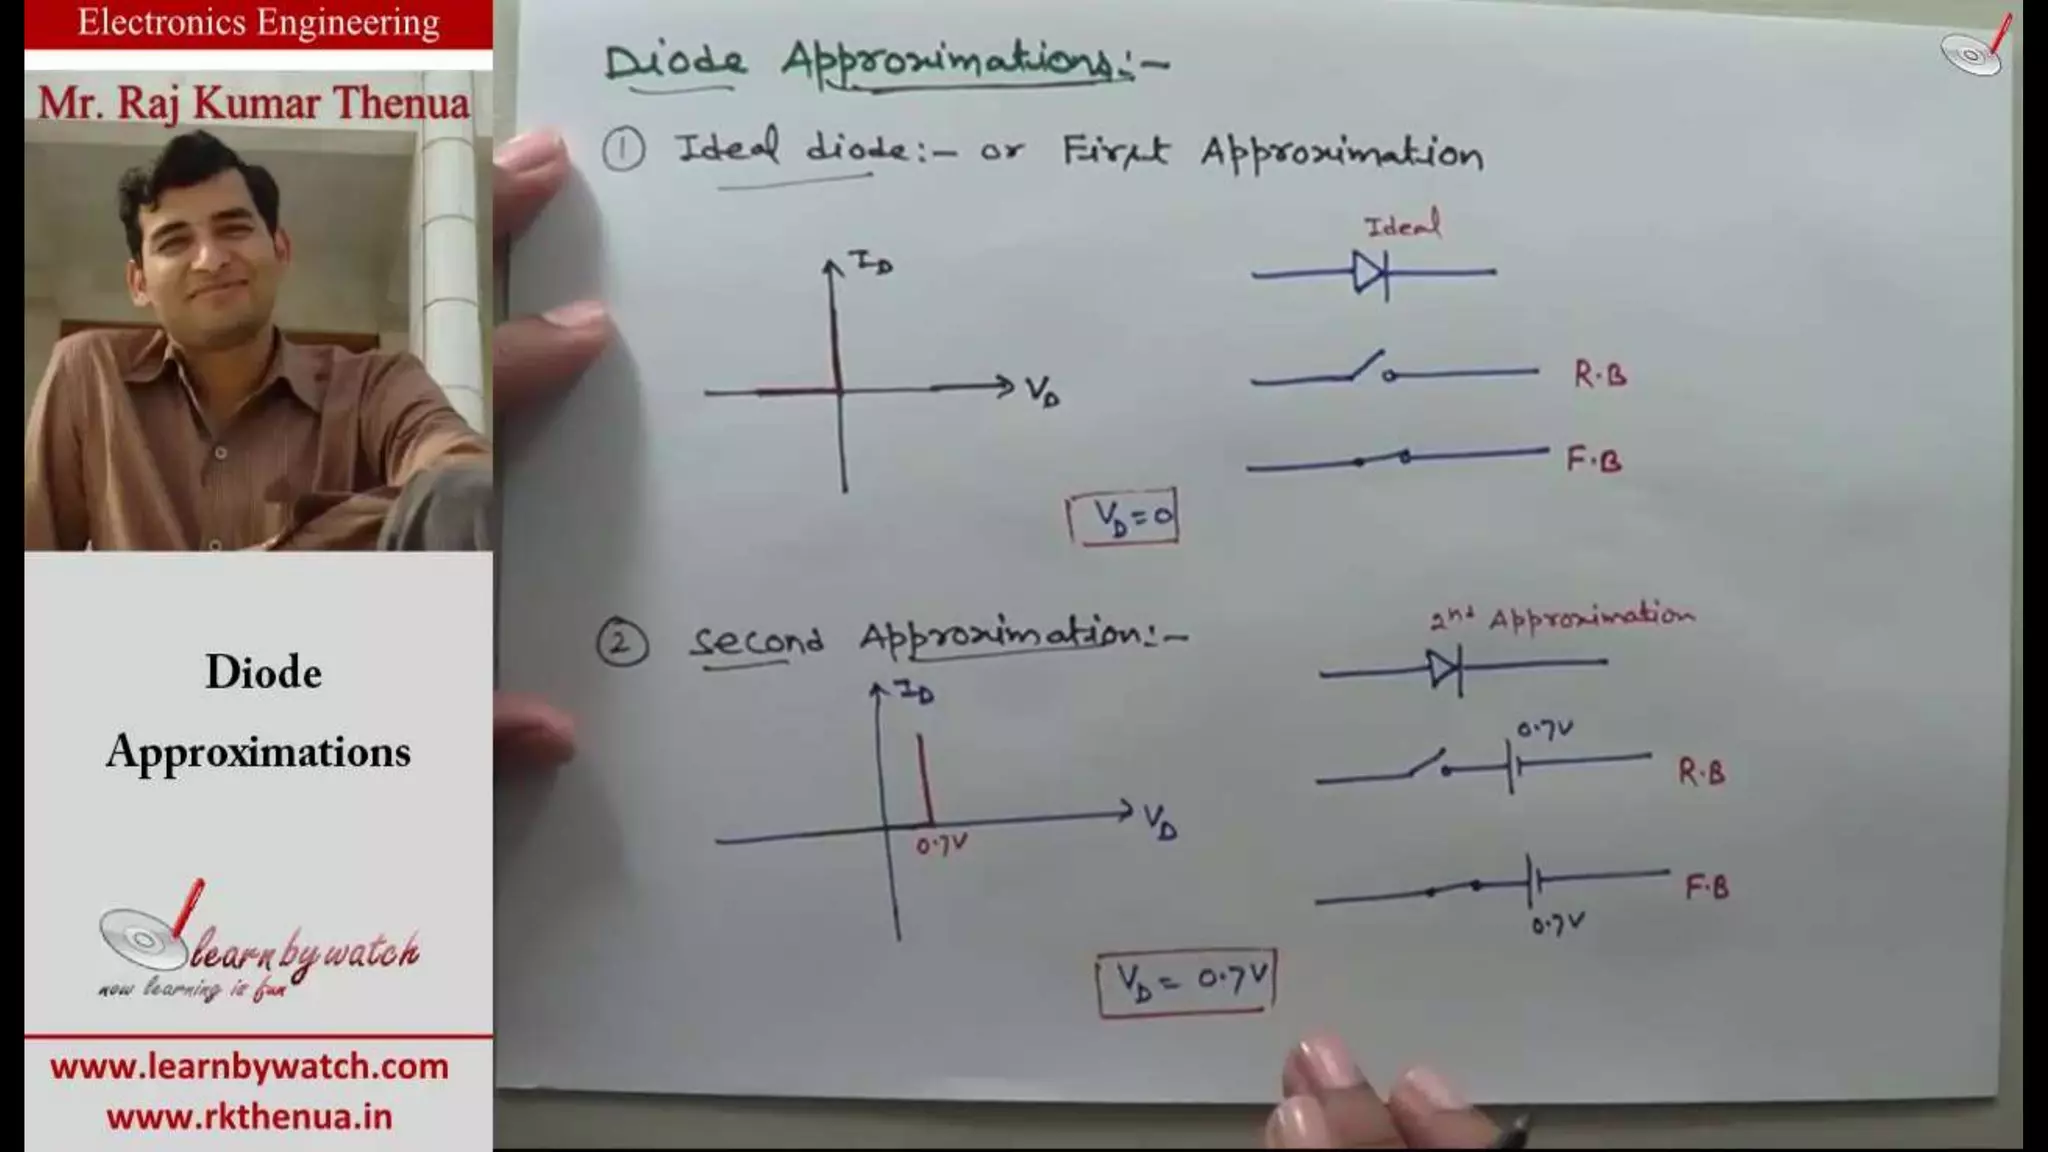 Electronics Engineering
Mr. Raj Kumar Thenua
Diode
Approximations
learnbywatch
now learning is fun
www.learnbywatch.com
www.rkthenua.in
Diode Approximations:-
① Ideal diode:- or First Approximation
I_D
V_D
Ideal
R.B
F.B
V_D = 0
② Second Approximation:-
I_D
V_D
0.7V
2nd Approximation
0.7V
R.B
F.B
0.7V
V_D = 0.7V